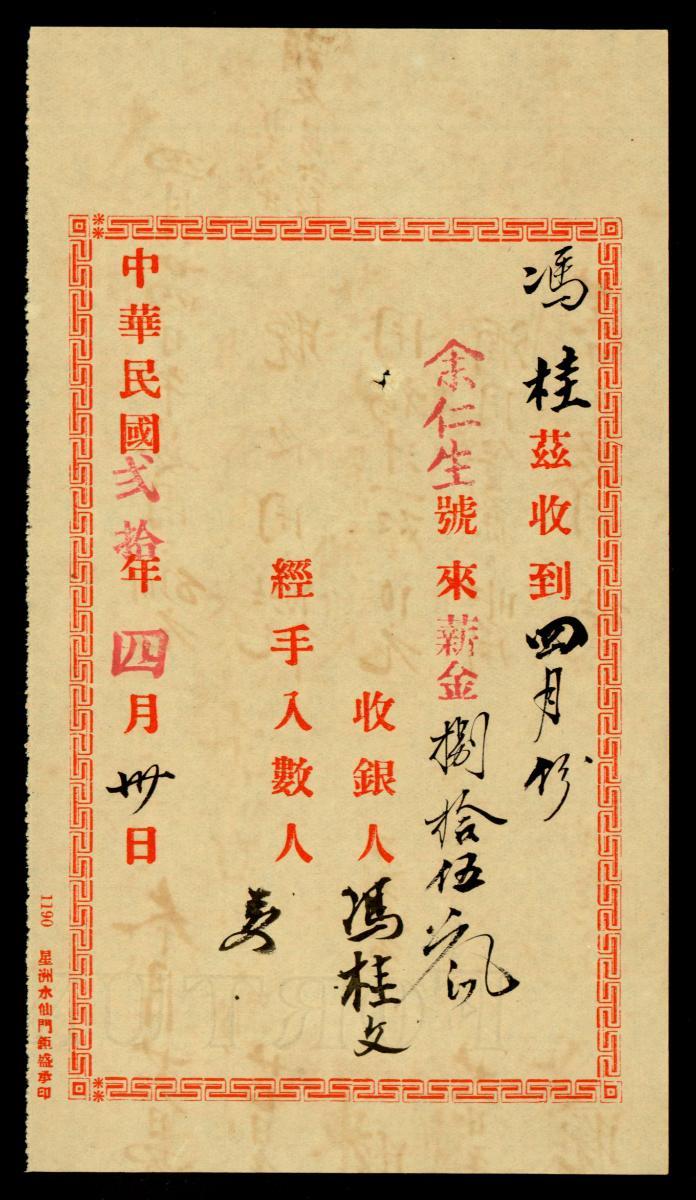 馮桂茲收到四月份
余仁生號來薪金捌拾伍元
收銀人馮桂文
經手入數人
中華民國弍拾年四月卅日
1190 星洲水仙門鉅盛承印